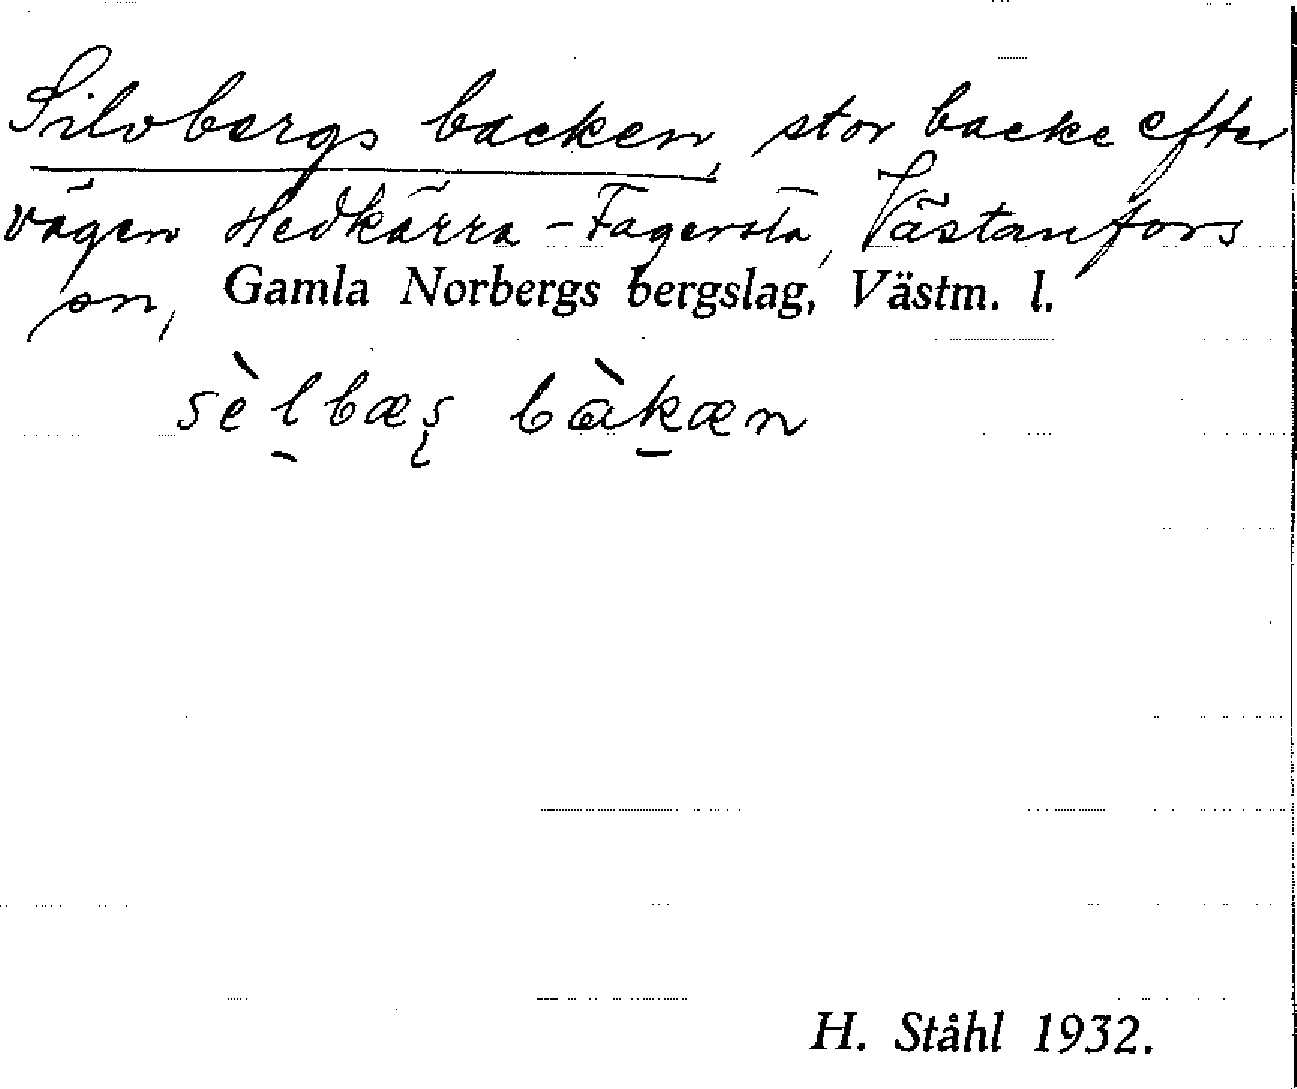 Silvbergs backen, stor backe efter
vägen Hedkärra - Fagersta, Västanfors
sn, Gamla Norbergs bergslag, Västm. l.
sèlbæș bàkæn
H. Ståhl 1932.